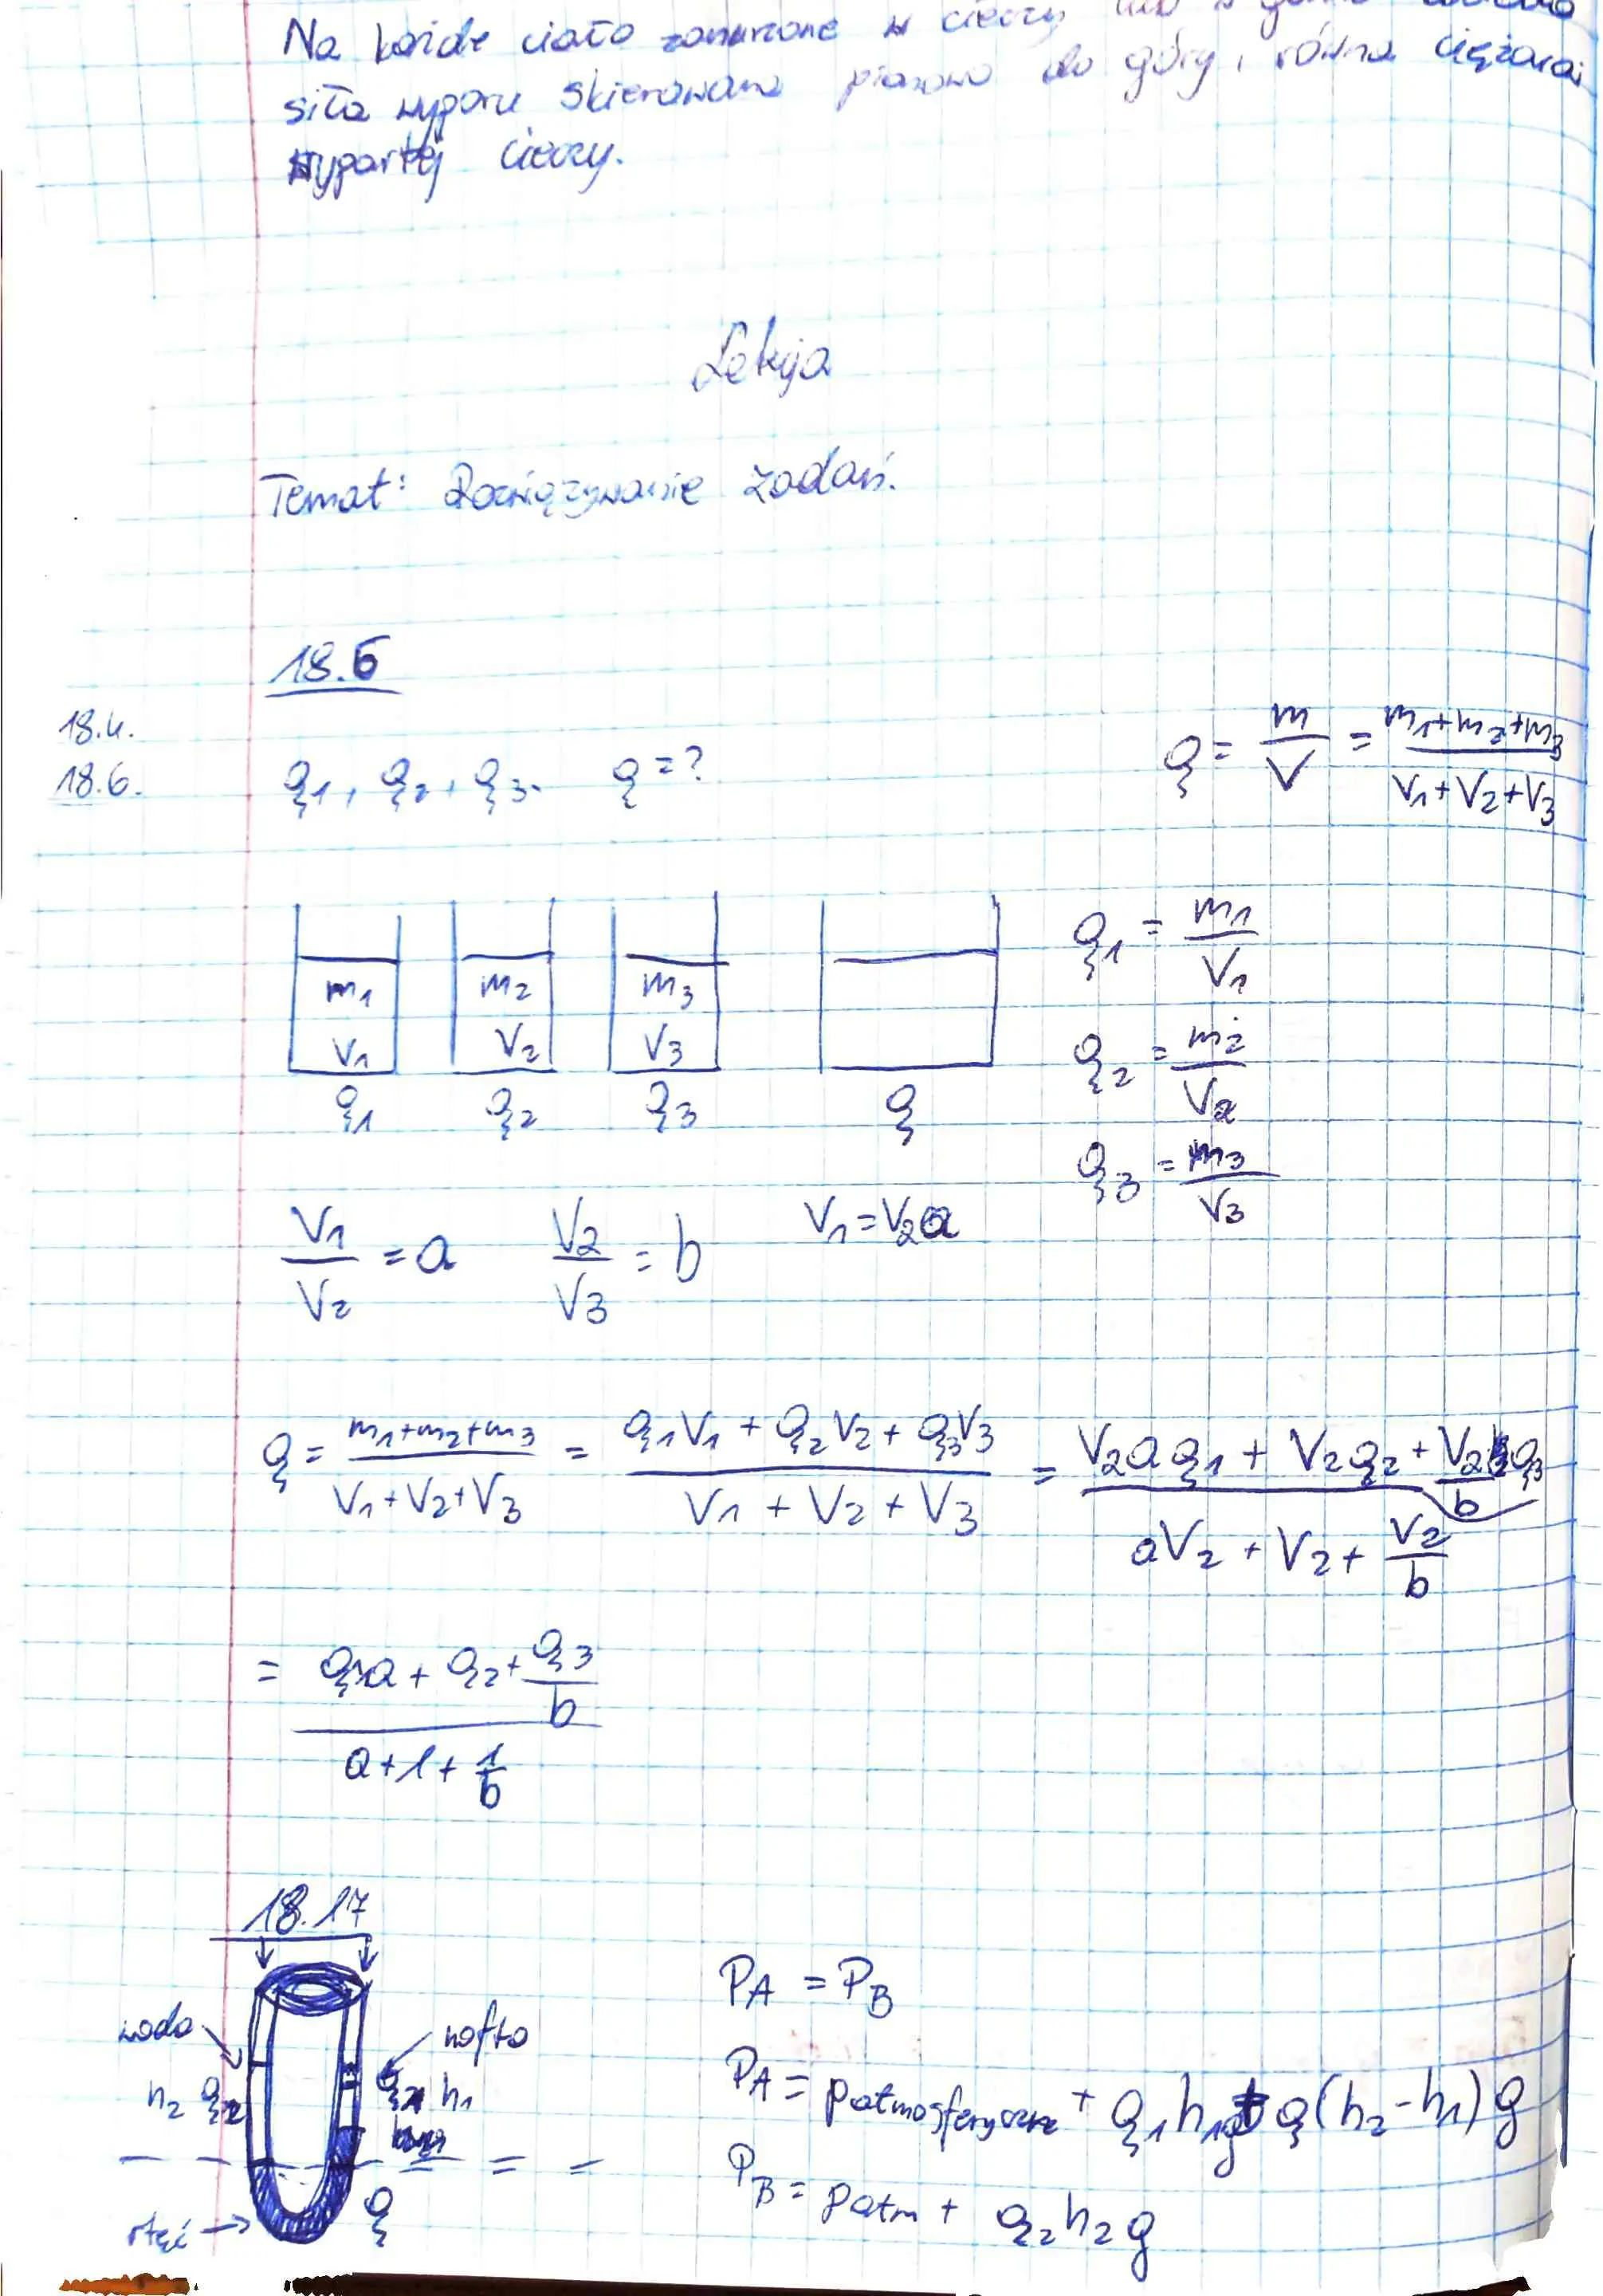 Na każde ciało zanurzone w cieczy lub w gazie
siła wyporu skierowana pionowo do góry, równa ciężarowi
wypartej cieczy.
Lekcja
Temat: Rozwiązywanie zadań.
18.6
18.4.
18.6.
ρ1, ρ2, ρ3. ρ = ?
ρ = m/V = (m1+m2+m3)/(V1+V2+V3)
m1 m2 m3
V1 V2 V3
ρ1 ρ2 ρ3 ρ
ρ1 = m1/V1
ρ2 = m2/V2
ρ3 = m3/V3
V1/V2 = a V2/V3 = b V1 = V2a
ρ = (m1+m2+m3)/(V1+V2+V3) = (ρ1V1 + ρ2V2 + ρ3V3)/(V1 + V2 + V3) = (V2aρ1 + V2ρ2 + V2/b ρ3)/(aV2 + V2 + V2/b)
= (ρ1a + ρ2 + ρ3/b)/(a + 1 + 1/b)
18.17
woda
nafta
h2 ρ2
ρ1 h1
rtęć
ρ
PA = PB
PA = patmosferyczne + ρ1h1g + ρ(h2-h1)g
PB = patm + ρ2h2g